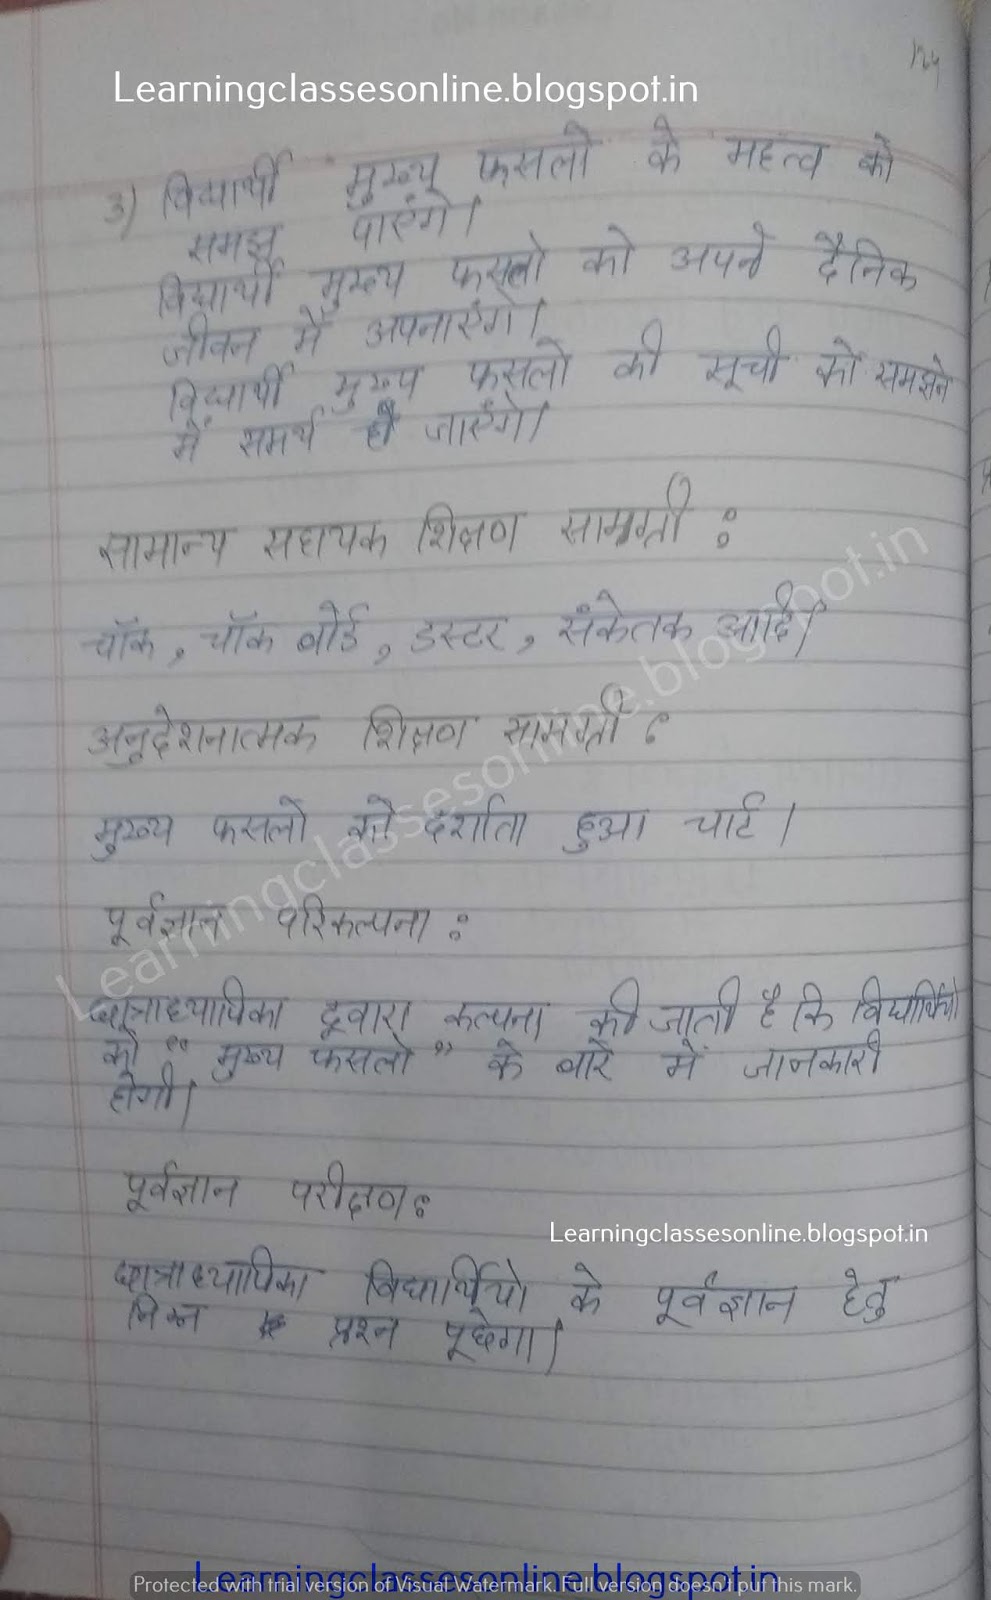 124
Learningclassesonline.blogspot.in
3) विद्यार्थी मुख्य फसलो के महत्व को
समझ पाएंगे।
विद्यार्थी मुख्य फसलो को अपने दैनिक
जीवन में अपनाएंगे।
विद्यार्थी मुख्य फसलो की सूची को समझने
में समर्थ हो जाएंगे।
सामान्य सहायक शिक्षण सामग्री :
चॉक, चॉक बोर्ड, डस्टर, संकेतक आदि।
अनुदेशनात्मक शिक्षण सामग्री :
मुख्य फसलो को दर्शाता हुआ चार्ट।
Learningclassesonline.blogspot.in
पूर्वज्ञान परिकल्पना :
छात्राध्यापिका द्वारा कल्पना की जाती है कि विद्यार्थियो
को " मुख्य फसलो " के बारे में जानकारी
होगी।
पूर्वज्ञान परीक्षण :
Learningclassesonline.blogspot.in
छात्राध्यापिका विद्यार्थियो के पूर्वज्ञान हेतु
निम्न प्रश्न पूछेगा।
Learningclassesonline.blogspot.in
Protected with trial version of Visual Watermark. Full version doesn't put this mark.